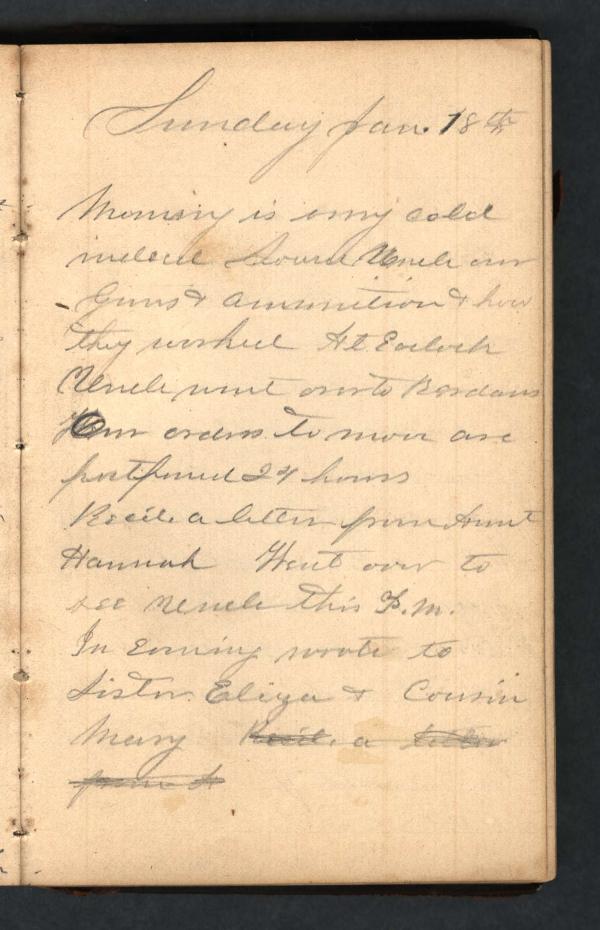 Sunday Jan. 18th
Morning is very cold
indeed Showed Uncle our
Guns & ammunition & how
they worked At Eoclock
Uncle went over to Berdans
Our orders to move are
postponed 24 hours
Recd. a letter from Aunt
Hannah Went over to
see Uncle this P.M.
In evening wrote to
Sister Eliza & Cousin
Mary Recd. a letter
from